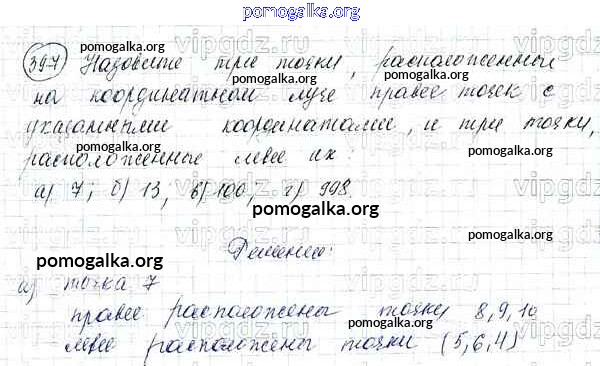 pomogalka.org
397 Назовите три точки, расположенные
на координатном луче правее точек с
указанными координатами, и три точки,
расположенные левее их:
а) 7; б) 13, в) 100, г) 998.
Решение:
а) точка 7
правее расположены точки 8,9,10
левее расположены точки (5,6,4)
pomogalka.org
pomogalka.org
pomogalka.org
pomogalka.org
pomogalka.org
pomogalka.org
pomogalka.org
pomogalka.org
pomogalka.org